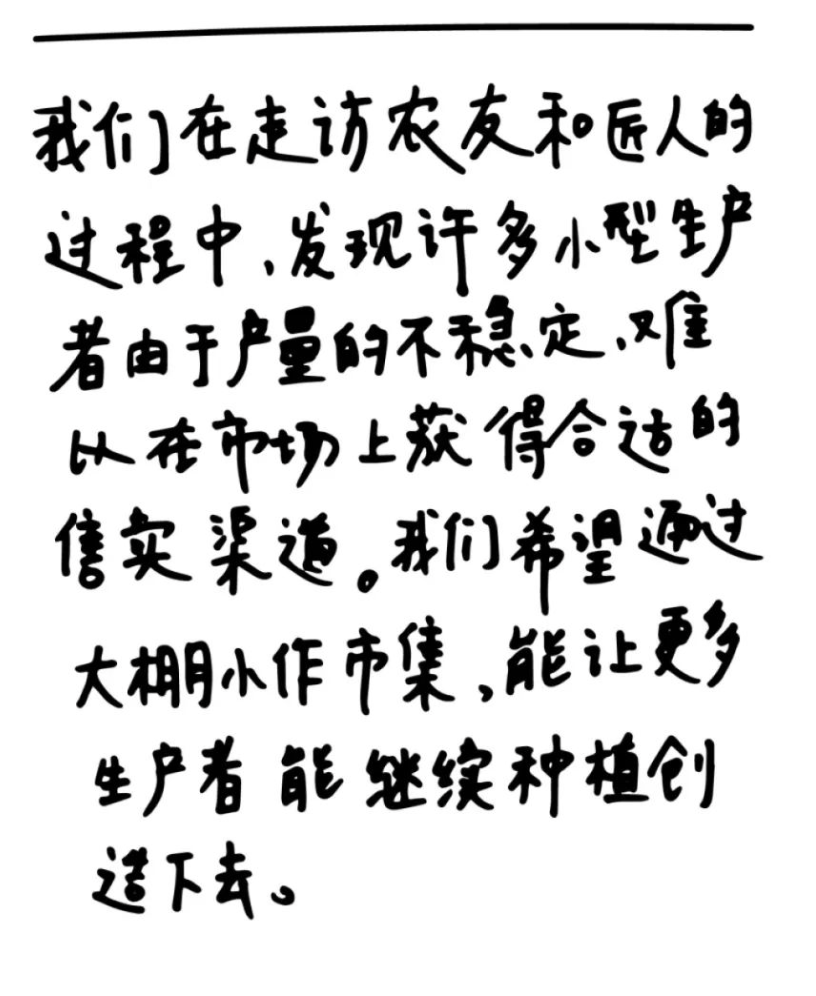 我们在走访农友和匠人的
过程中、发现许多小型生产
者由于产量的不稳定、难
以在市场上获得合适的
售卖渠道。我们希望通过
大棚小作市集,能让更多
生产者能继续种植创
造下去。